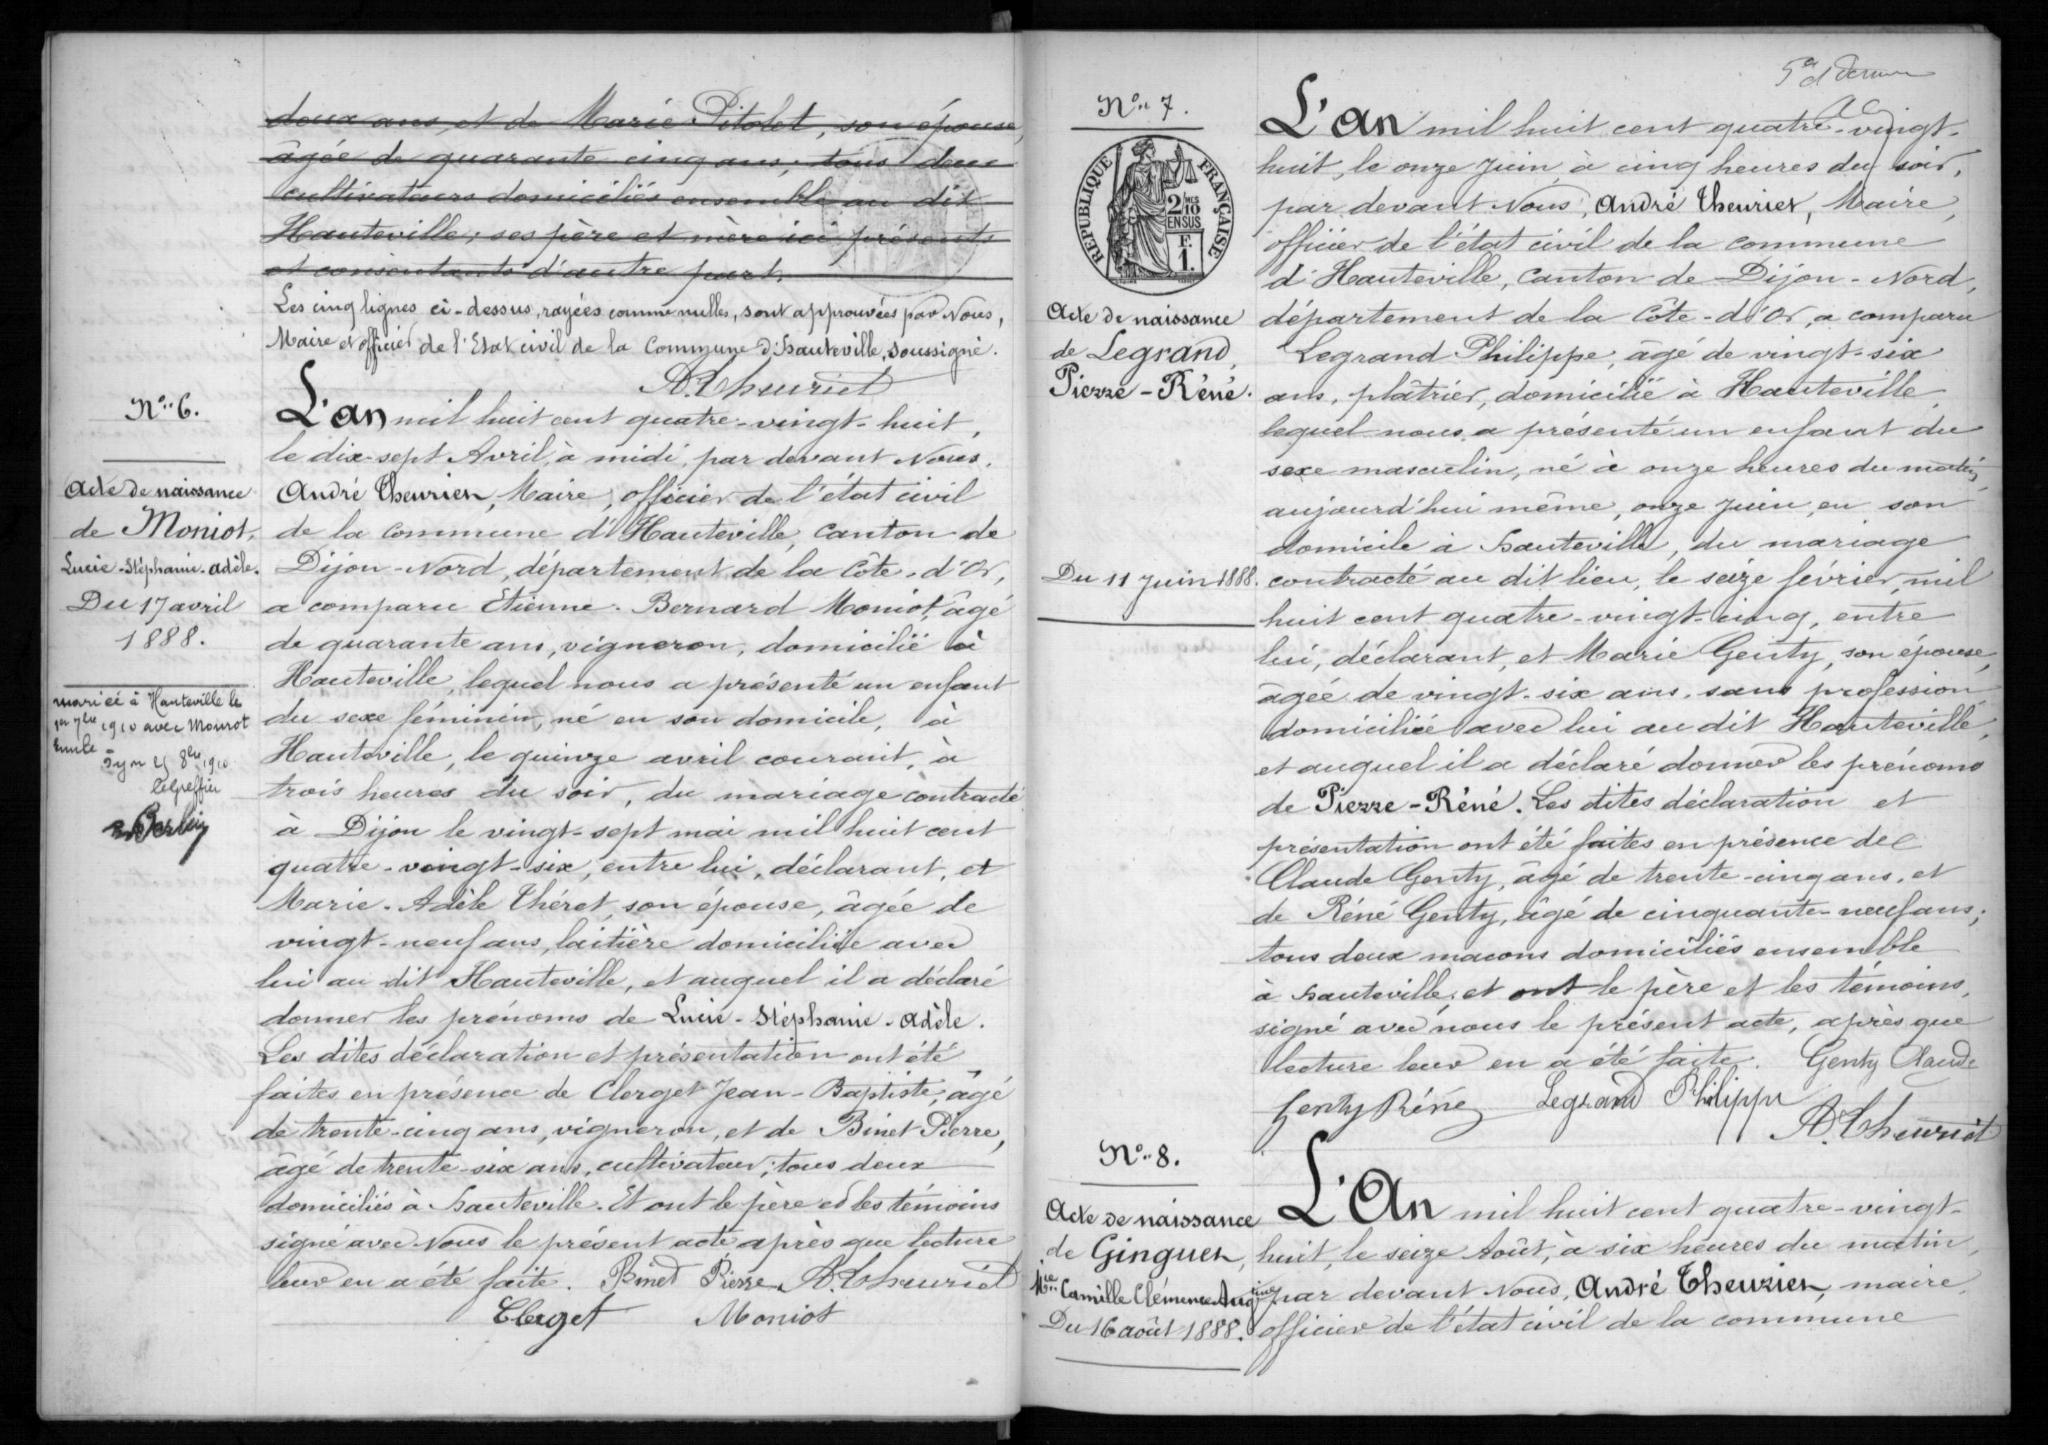 doux ans, et de Marie Pitolet, son épouse,
âgée de quarante cinq ans, tous deux
cultivateurs domiciliés ensemble au dit
Hauteville; ses père et mère ici présents
et consentants d'autre part.
Les cinq lignes ci-dessus, rayées comme nulles, sont approuvées par Nous,
Maire et officier de l'Etat civil de la Commune d'Hauteville, soussigné.
A. Theuriet
N° 6.
Acte de naissance
de Moniot,
Lucie-Stéphanie-Adèle.
Du 17 avril
1888.
mariée à Hauteville le
1er 7bre 1910 avec Moniot
Emile
8bre 1910
L'an mil huit cent quatre-vingt-huit,
le dix-sept Avril, à midi, par devant Nous,
André Theuriet, Maire, officier de l'état civil
de la commune d'Hauteville, canton de
Dijon-Nord, département de la Côte-d'Or,
a comparu Etienne-Bernard Moniot, âgé
de quarante ans, vigneron, domicilié à
Hauteville, lequel nous a présenté un enfant
du sexe féminin, né en son domicile, à
Hauteville, le quinze avril courant, à
trois heures du soir, du mariage contracté
à Dijon le vingt-sept mai mil huit cent
quatre-vingt-six, entre lui, déclarant, et
Marie-Adèle Théret, son épouse, âgée de
vingt-neuf ans, laitière domiciliée avec
lui au dit Hauteville, et auquel il a déclaré
donner les prénoms de Lucie-Stéphanie-Adèle.
Les dites déclaration et présentation ont été
faites en présence de Clerget Jean-Baptiste, âgé
de trente-cinq ans, vigneron, et de Binet Pierre,
âgé de trente-six ans, cultivateur; tous deux
domiciliés à Hauteville. Et ont le père et les témoins
signé avec Nous le présent acte après que lecture
leur en a été faite. Binet Pierre A. Theuriet
Clerget Moniot
N° 7.
RÉPUBLIQUE FRANÇAISE
2/10 MES
EN SUS
F.
1.
Acte de naissance
de Legrand,
Pierre-Réné.
Du 11 Juin 1888.
L'an mil huit cent quatre-vingt-
huit, le onze Juin, à cinq heures du soir,
par devant Nous, André Theuriet, Maire,
officier de l'état civil de la commune
d'Hauteville, Canton de Dijon-Nord,
département de la Côte-d'Or, a comparu
Legrand Philippe, âgé de vingt-six
ans, plâtrier, domicilié à Hauteville,
lequel nous a présenté un enfant du
sexe masculin, né à onze heures du matin,
aujourd'hui même, onze juin, en son
domicile à Hauteville, du mariage
contracté au dit lieu, le seize février, mil
huit cent quatre-vingt-cinq, entre
lui, déclarant, et Marie Genty, son épouse,
âgée de vingt-six ans, sans profession
domiciliée avec lui au dit Hauteville,
et auquel il a déclaré donner les prénoms
de Pierre-Réné. Les dites déclaration et
présentation ont été faites en présence de
Claude Genty, âgé de trente-cinq ans, et
de Réné Genty, âgé de cinquante-neuf ans;
tous deux macons domiciliés ensemble
à Hauteville; et ont le père et les témoins,
signé avec nous le présent acte, après que
lecture leur en a été faite. Genty Claude
Genty Réné Legrand Philippe
A. Theuriet
N° 8.
Acte de naissance
de Ginguer,
Mie Camille Clémence Augtine
Du 16 août 1888.
L'An mil huit cent quatre-vingt-
huit, le seize Août, à six heures du matin,
par devant Nous, André Theuriet, maire,
officier de l'état civil de la commune